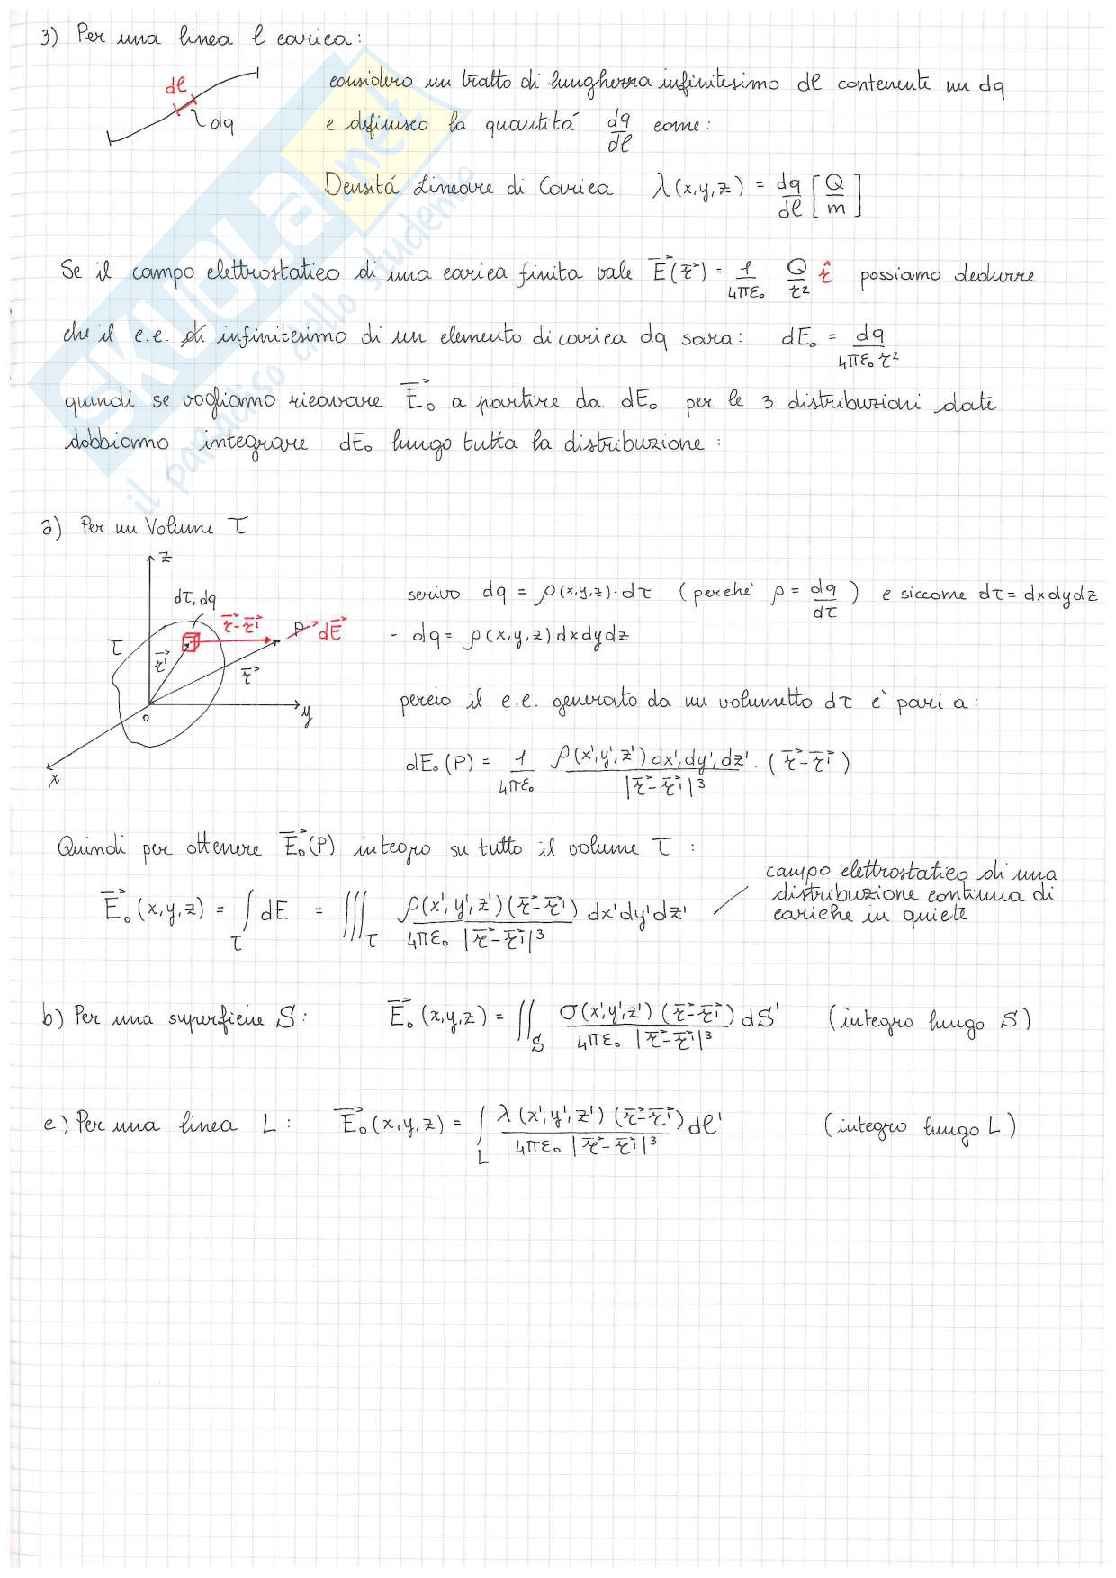 3) Per una linea l carica:
dl
dq
considero un tratto di lunghezza infinitesimo dl contenente un dq
e definisco la quantitá dq/dl come:
Densitá Lineare di Carica λ(x,y,z) = dq/dl [Q/m]
Se il campo elettrostatico di una carica finita vale E⃗(r⃗) = 1/4πε₀ Q/r² r̂ possiamo dedurre
che il c.e. infinitesimo di un elemento di carica dq sara: dE₀ = dq/4πε₀r²
quindi se vogliamo ricavare E⃗₀ a partire da dE₀ per le 3 distribuzioni date
dobbiamo integrare dE₀ lungo tutta la distribuzione:
a) Per un Volume τ
z
dτ, dq
τ
r⃗-r⃗'
P
dE⃗
r⃗'
r⃗
o
y
x
scrivo dq = ρ(x,y,z)·dτ (perché ρ = dq/dτ) e siccome dτ = dxdydz
- dq = ρ(x,y,z)dxdydz
perció il c.e. generato da un volumetto dτ é pari a:
dE₀(P) = 1/4πε₀ ρ(x',y',z')dx',dy',dz'/|r⃗-r⃗'|³ · (r⃗-r⃗')
Quindi per ottenere E⃗₀(P) integro su tutto il volume τ:
E⃗₀(x,y,z) = ∫τ dE = ∭τ ρ(x',y',z')(r⃗-r⃗')/4πε₀|r⃗-r⃗'|³ dx'dy'dz'
campo elettrostatico di una
distribuzione continua di
cariche in quiete
b) Per una superficie S: E⃗₀(x,y,z) = ∬S σ(x',y',z')(r⃗-r⃗')/4πε₀|r⃗-r⃗'|³ dS' (integro lungo S)
c) Per una linea L: E⃗₀(x,y,z) = ∫L λ(x',y',z')(r⃗-r⃗')/4πε₀|r⃗-r⃗'|³ dl' (integro lungo L)
SKUOLA.net
il paradiso dello studente